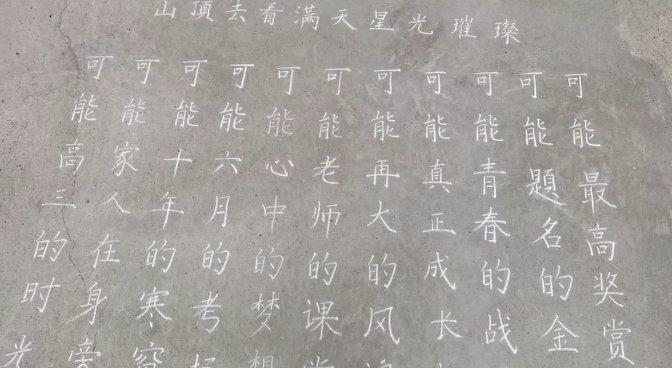 山頂去看满天星光璀璨
可能高三的时光
可能家人在身旁
可能十年的寒窗
可能六月的考场
可能心中的梦想
可能老师的课堂
可能再大的风
可能真正成长
可能青春的战
可能題名的金
可能最高奖赏